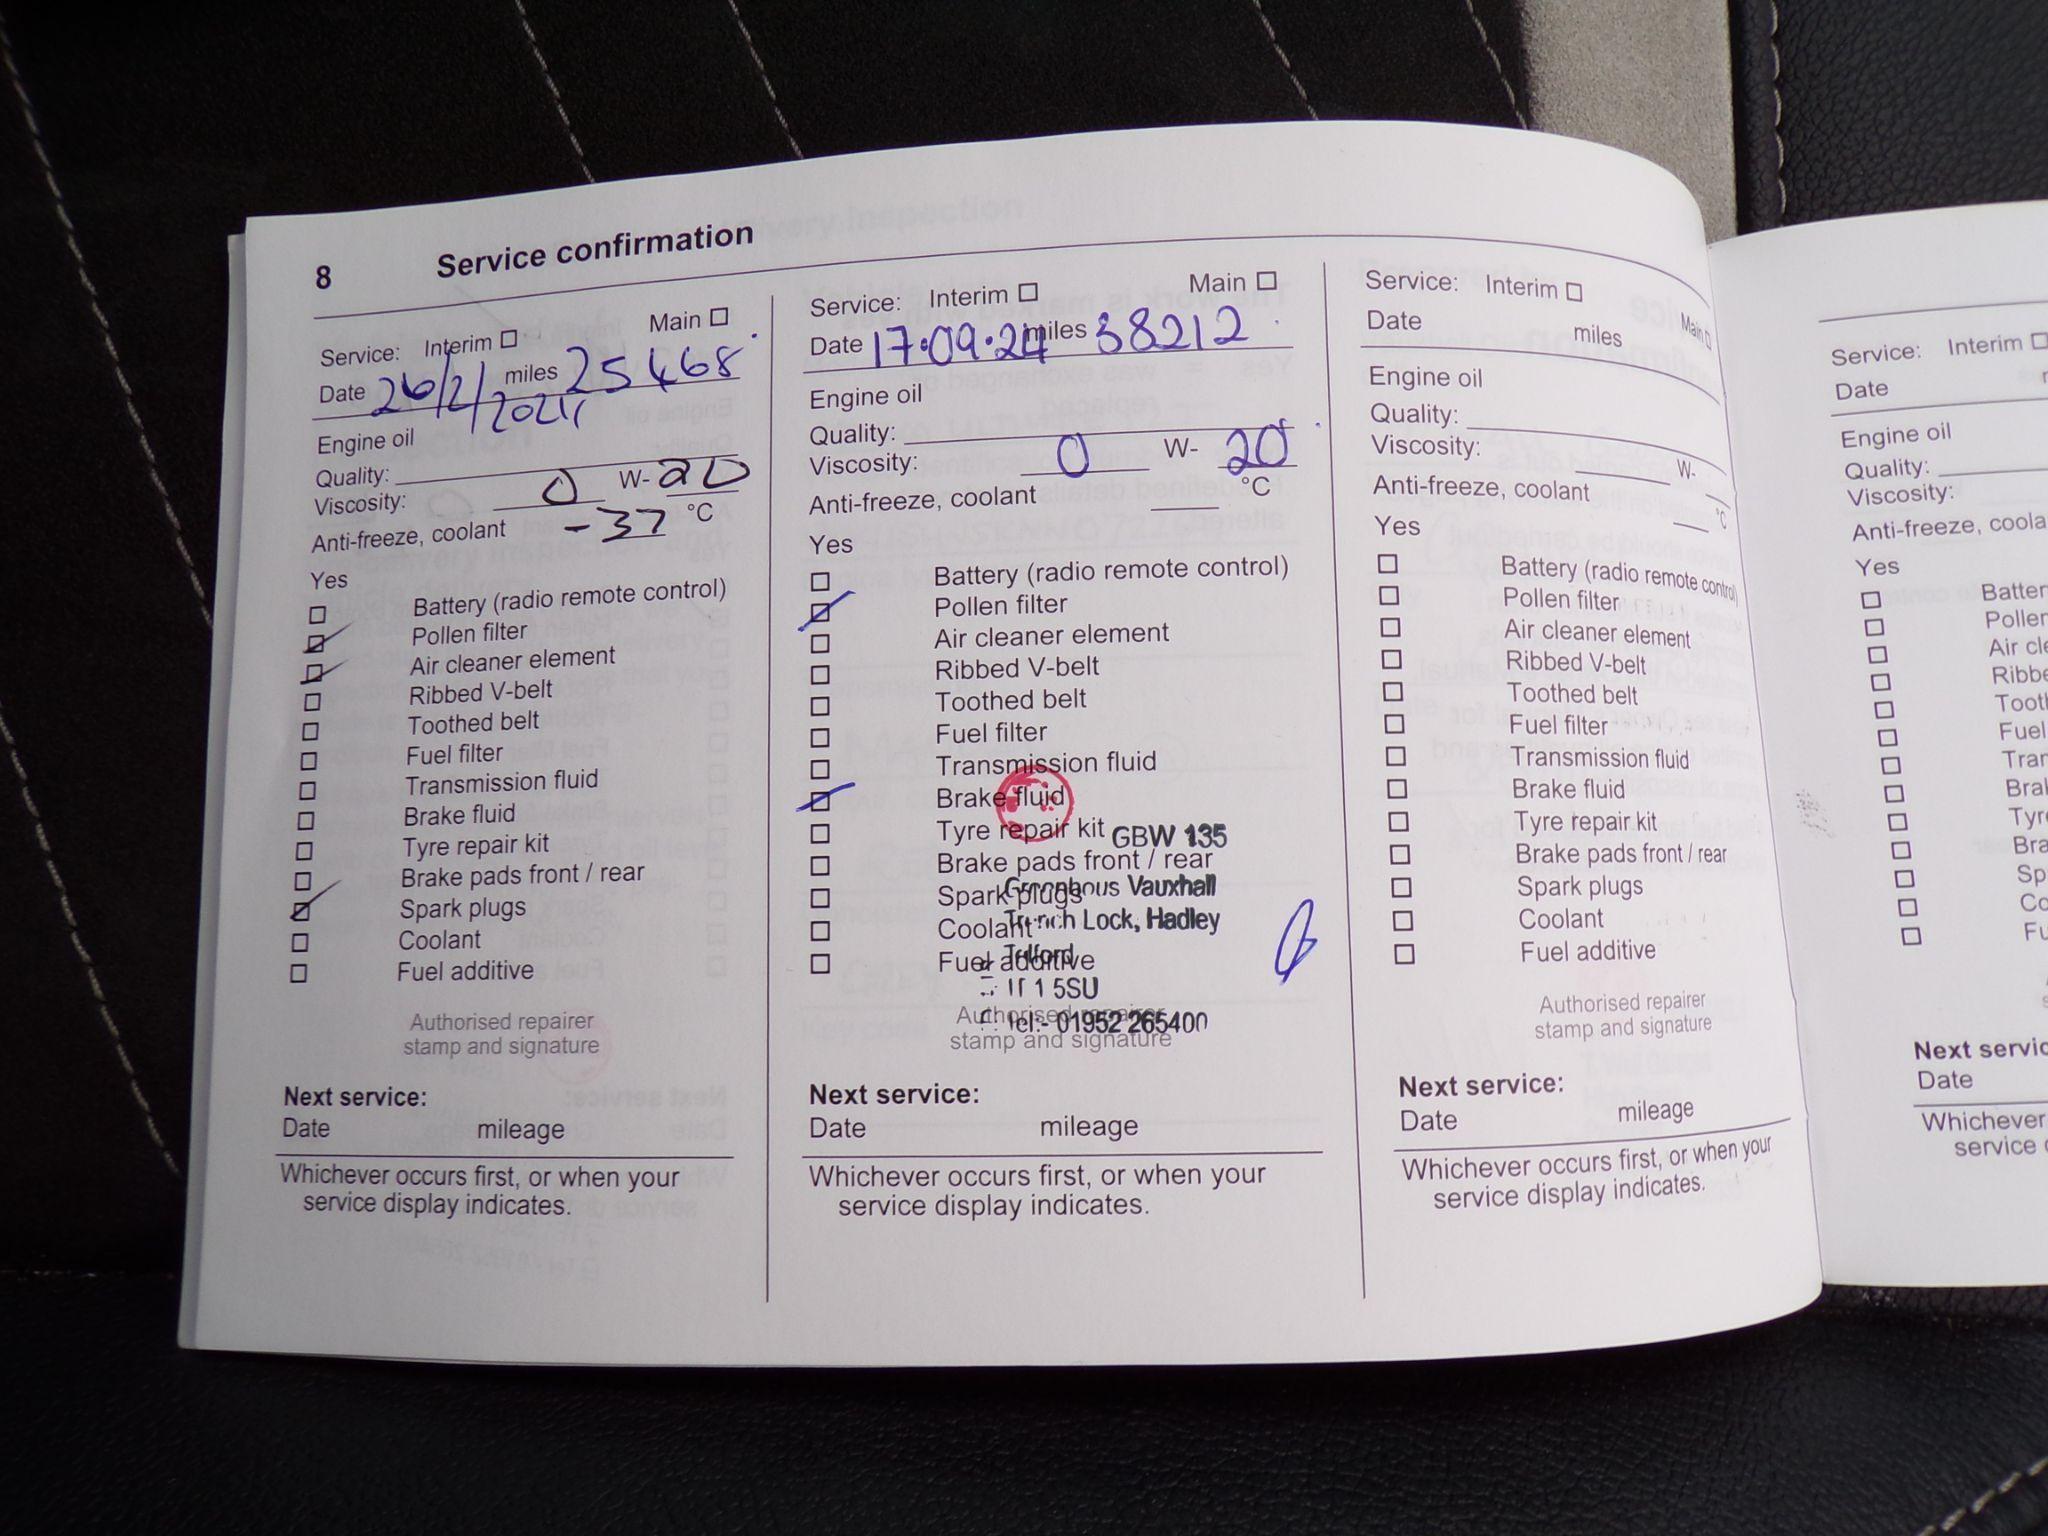 8 Service confirmation
Service: Interim ☐ Main ☐
Date 26/2/2021 miles 25468
Engine oil
Quality:
Viscosity: 0 W- 20
Anti-freeze, coolant -37 °C
Yes
☐ Battery (radio remote control)
☑ Pollen filter
☑ Air cleaner element
☐ Ribbed V-belt
☐ Toothed belt
☐ Fuel filter
☐ Transmission fluid
☐ Brake fluid
☐ Tyre repair kit
☐ Brake pads front / rear
☑ Spark plugs
☐ Coolant
☐ Fuel additive
Authorised repairer
stamp and signature
Next service:
Date mileage
Whichever occurs first, or when your
service display indicates.
Service: Interim ☐ Main ☐
Date 17.09.24 miles 38212
Engine oil
Quality:
Viscosity: 0 W- 20
Anti-freeze, coolant °C
Yes
☐ Battery (radio remote control)
☑ Pollen filter
☐ Air cleaner element
☐ Ribbed V-belt
☐ Toothed belt
☐ Fuel filter
☐ Transmission fluid
☑ Brake fluid
☐ Tyre repair kit
GBW 135
☐ Brake pads front / rear
☐ Spark plugs
Greenhous Vauxhall
☐ Coolant
Trench Lock, Hadley
☐ Fuel additive
Telford
5SU
Authorised repairer
Tel:- 01952 265400
stamp and signature
Next service:
Date mileage
Whichever occurs first, or when your
service display indicates.
Service: Interim ☐ Main ☐
Date miles
Engine oil
Quality:
Viscosity: W-
Anti-freeze, coolant °C
Yes
☐ Battery (radio remote control)
☐ Pollen filter
☐ Air cleaner element
☐ Ribbed V-belt
☐ Toothed belt
☐ Fuel filter
☐ Transmission fluid
☐ Brake fluid
☐ Tyre repair kit
☐ Brake pads front / rear
☐ Spark plugs
☐ Coolant
☐ Fuel additive
Authorised repairer
stamp and signature
Next service:
Date mileage
Whichever occurs first, or when your
service display indicates.
Service: Interim ☐
Date
Engine oil
Quality:
Viscosity:
Anti-freeze,
Yes
Next
Date
Whichever
service